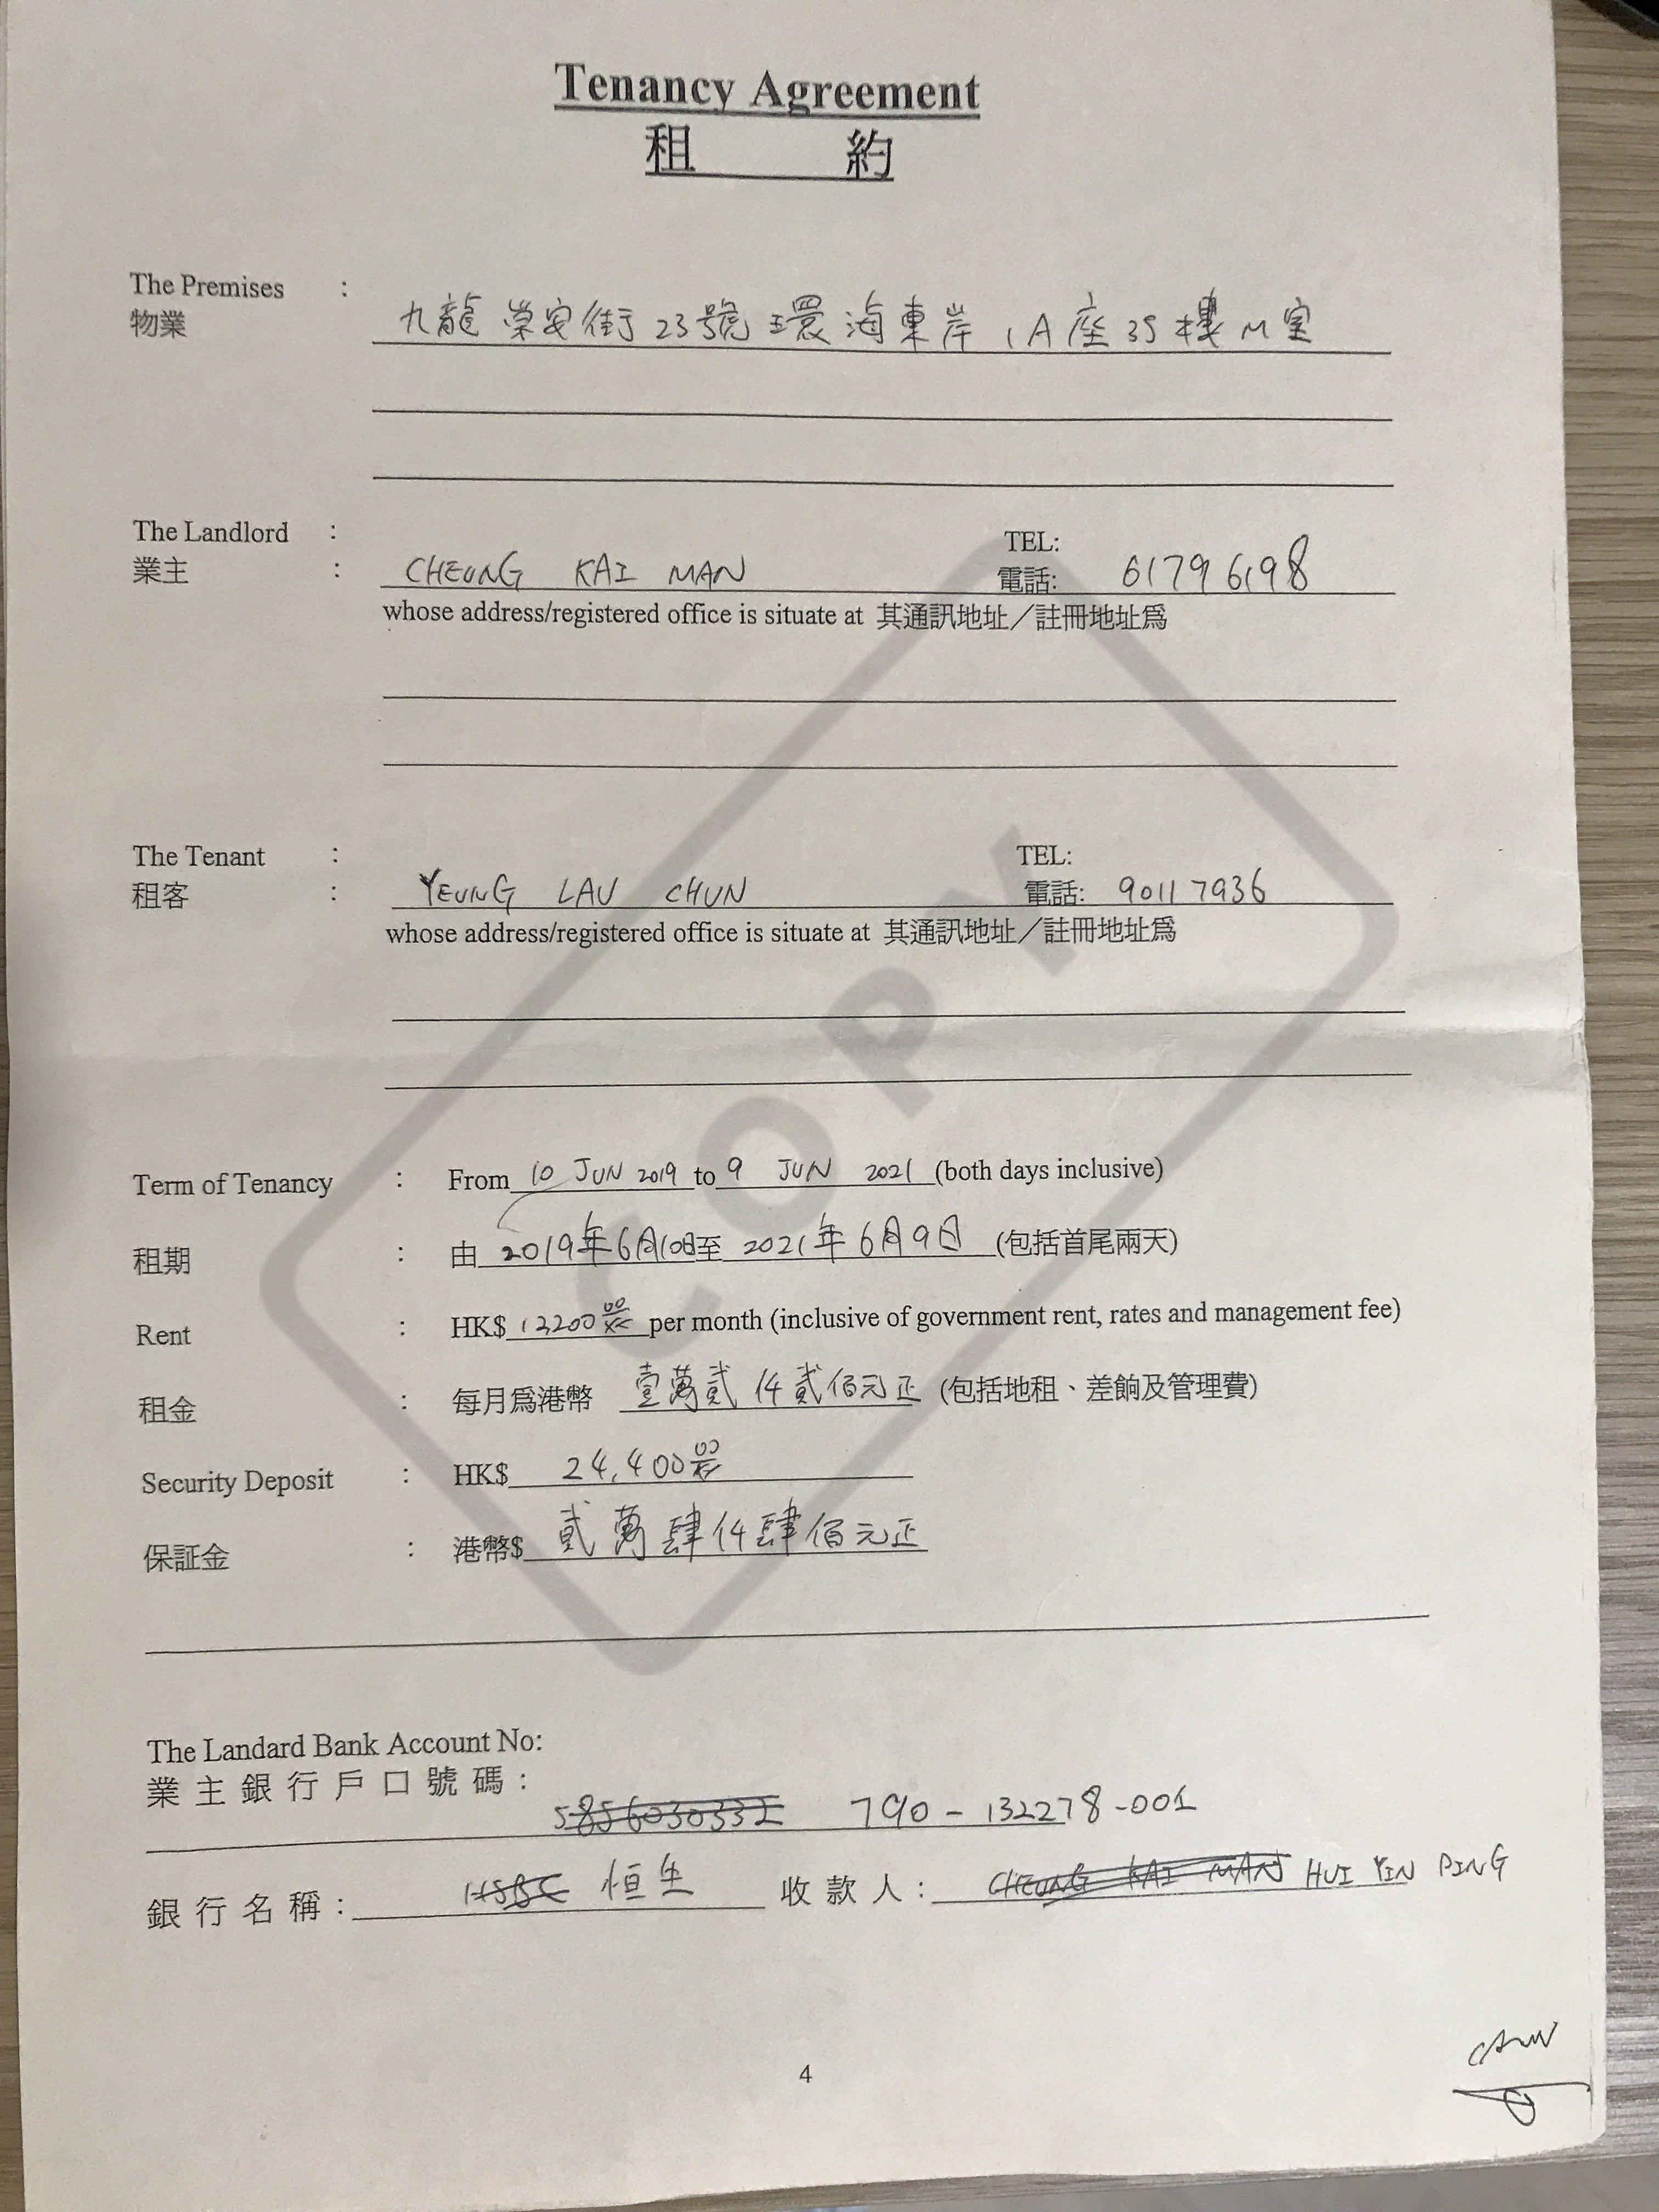 Tenancy Agreement
租 約
The Premises :
物業 九龍 榮安街 23號 環海東岸 1A座 35樓 M室
The Landlord :
業主 : CHEUNG KAI MAN TEL: 電話: 6179 6198
whose address/registered office is situate at 其通訊地址／註冊地址爲
The Tenant :
租客 : YEUNG LAU CHUN TEL: 電話: 9011 7936
whose address/registered office is situate at 其通訊地址／註冊地址爲
COPY
Term of Tenancy : From 10 JUN 2019 to 9 JUN 2021 (both days inclusive)
租期 : 由 2019年6月10日至 2021年6月9日 (包括首尾兩天)
Rent : HK$ 12200 00/xx per month (inclusive of government rent, rates and management fee)
租金 : 每月爲港幣 壹萬貳仟貳佰元正 (包括地租、差餉及管理費)
Security Deposit : HK$ 24,400 00/xx
保証金 : 港幣$ 貳萬肆仟肆佰元正
The Landard Bank Account No:
業主銀行戶口號碼：
5856030332 790-132278-001
銀行名稱： HSBC 恒生 收款人： CHEUNG KAI MAN HUI YIN PING
4